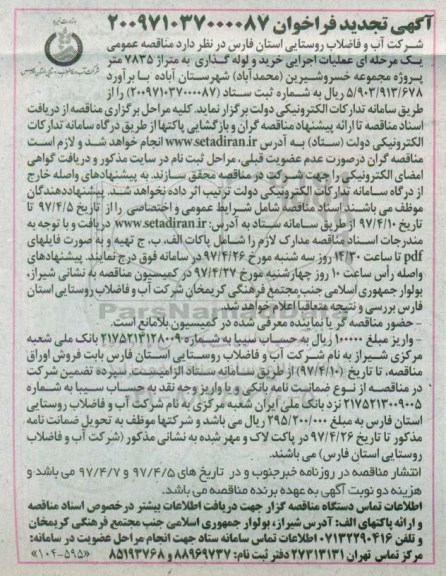 آگهی تجدید فراخوان ۲۰۰۹۷۱۰۳۷۰۰۰۰۸۷
شرکت آب و فاضلاب روستایی استان فارس در نظر دارد مناقصه عمومی
یک مرحله ای عملیات اجرایی خرید و لوله گذاری به متراژ ۷۸۳۵ متر
پروژه مجموعه خسروشیرین (محمدآباد) شهرستان آباده با برآورد
۵/۹۰۳/۹۱۳/۶۷۸ ریال به شماره ثبت ستاد (۲۰۰۹۷۱۰۳۷۰۰۰۰۸۷) را از
طریق سامانه تدارکات الکترونیکی دولت برگزار نماید. کلیه مراحل برگزاری مناقصه از دریافت
اسناد مناقصه تا ارائه پیشنهاد مناقصه گران و بازگشایی پاکتها از طریق درگاه سامانه تدارکات
الکترونیکی دولت (ستاد) به آدرس www.setadiran.ir انجام خواهد شد و لازم است
مناقصه گران درصورت عدم عضویت قبلی، مراحل ثبت نام در سایت مذکور و دریافت گواهی
امضای الکترونیکی را جهت شرکت در مناقصه محقق سازند. به پیشنهادهای واصله خارج
از درگاه سامانه تدارکات الکترونیکی دولت ترتیب اثر داده نخواهد شد. پیشنهاددهندگان
موظف می باشند اسناد مناقصه شامل شرایط عمومی و اختصاصی را از تاریخ ۹۷/۴/۵ تا
تاریخ ۹۷/۴/۱۰ از طریق سامانه ستاد به آدرس: www.setadiran.ir دریافت و با توجه به
مندرجات اسناد مناقصه مدارک لازم را شامل پاکات الف، ب، ج تهیه و به صورت فایلهای
pdf تا ساعت ۱۴/۳۰ روز سه شنبه مورخ ۹۷/۴/۲۶ در سامانه فوق درج نمایند. پیشنهادهای
واصله رأس ساعت ۱۰ روز چهارشنبه مورخ ۹۷/۴/۲۷ در کمیسیون مناقصه به نشانی شیراز،
بولوار جمهوری اسلامی جنب مجتمع فرهنگی کریمخان شرکت آب و فاضلاب روستایی استان
فارس بررسی و نتیجه متعاقباً اعلام خواهد شد.
- حضور مناقصه گر یا نماینده معرفی شده در کمیسیون بلامانع است.
- واریز مبلغ ۱۰۰۰۰۰ ریال به حساب سیبا به شماره ۲۱۷۵۲۱۳۱۲۸۰۰۹ بانک ملی شعبه
مرکزی شیراز به نام شرکت آب و فاضلاب روستایی استان فارس بابت فروش اوراق
مناقصه، تا تاریخ (۹۷/۴/۱۰) از طریق سامانه ستاد الزامیست. سپرده تضمین شرکت
در مناقصه از نوع ضمانت نامه بانکی و یا واریز وجه نقد به حساب سیبا به شماره
۲۱۷۵۲۱۳۰۰۹۰۰۵ نزد بانک ملی ایران شعبه مرکزی به نام شرکت آب و فاضلاب روستایی
استان فارس به مبلغ ۲۹۵/۲۰۰/۰۰۰ ریال می باشد و شرکتها موظف به تحویل ضمانت نامه
مذکور تا تاریخ ۹۷/۴/۲۶ در پاکت لاک و مهر شده به نشانی مذکور (شرکت آب و فاضلاب
روستایی استان فارس) می باشند.
انتشار مناقصه در روزنامه خبرجنوب و در تاریخ های ۹۷/۴/۵ و ۹۷/۴/۷ می باشد و
هزینه دو نوبت آگهی به عهده برنده مناقصه می باشد.
اطلاعات تماس دستگاه مناقصه گزار جهت دریافت اطلاعات بیشتر درخصوص اسناد مناقصه
و ارائه پاکتهای الف: آدرس شیراز، بولوار جمهوری اسلامی جنب مجتمع فرهنگی کریمخان
و تلفن ۰۷۱۳۲۲۹۰۴۱۶ اطلاعات تماس سامانه ستاد جهت انجام مراحل عضویت در سامانه:
مرکز تماس تهران ۲۷۳۱۳۱۳۱ دفتر ثبت نام: ۸۸۹۶۹۷۳۷ و ۸۵۱۹۳۷۶۸ «۱۰۴-۵۹۵»